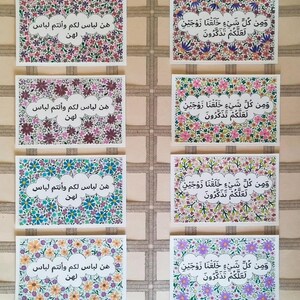 هن لباس لكم وأنتم لباس
لهن
وَمِن كُلِّ شَيْءٍ خَلَقْنَا زَوْجَيْنِ
لَعَلَّكُمْ تَذَكَّرُونَ
هن لباس لكم وأنتم لباس
لهن
وَمِن كُلِّ شَيْءٍ خَلَقْنَا زَوْجَيْنِ
لَعَلَّكُمْ تَذَكَّرُونَ
هن لباس لكم وأنتم لباس
لهن
وَمِن كُلِّ شَيْءٍ خَلَقْنَا زَوْجَيْنِ
لَعَلَّكُمْ تَذَكَّرُونَ
هن لباس لكم وأنتم لباس
لهن
وَمِن كُلِّ شَيْءٍ خَلَقْنَا زَوْجَيْنِ
لَعَلَّكُمْ تَذَكَّرُونَ